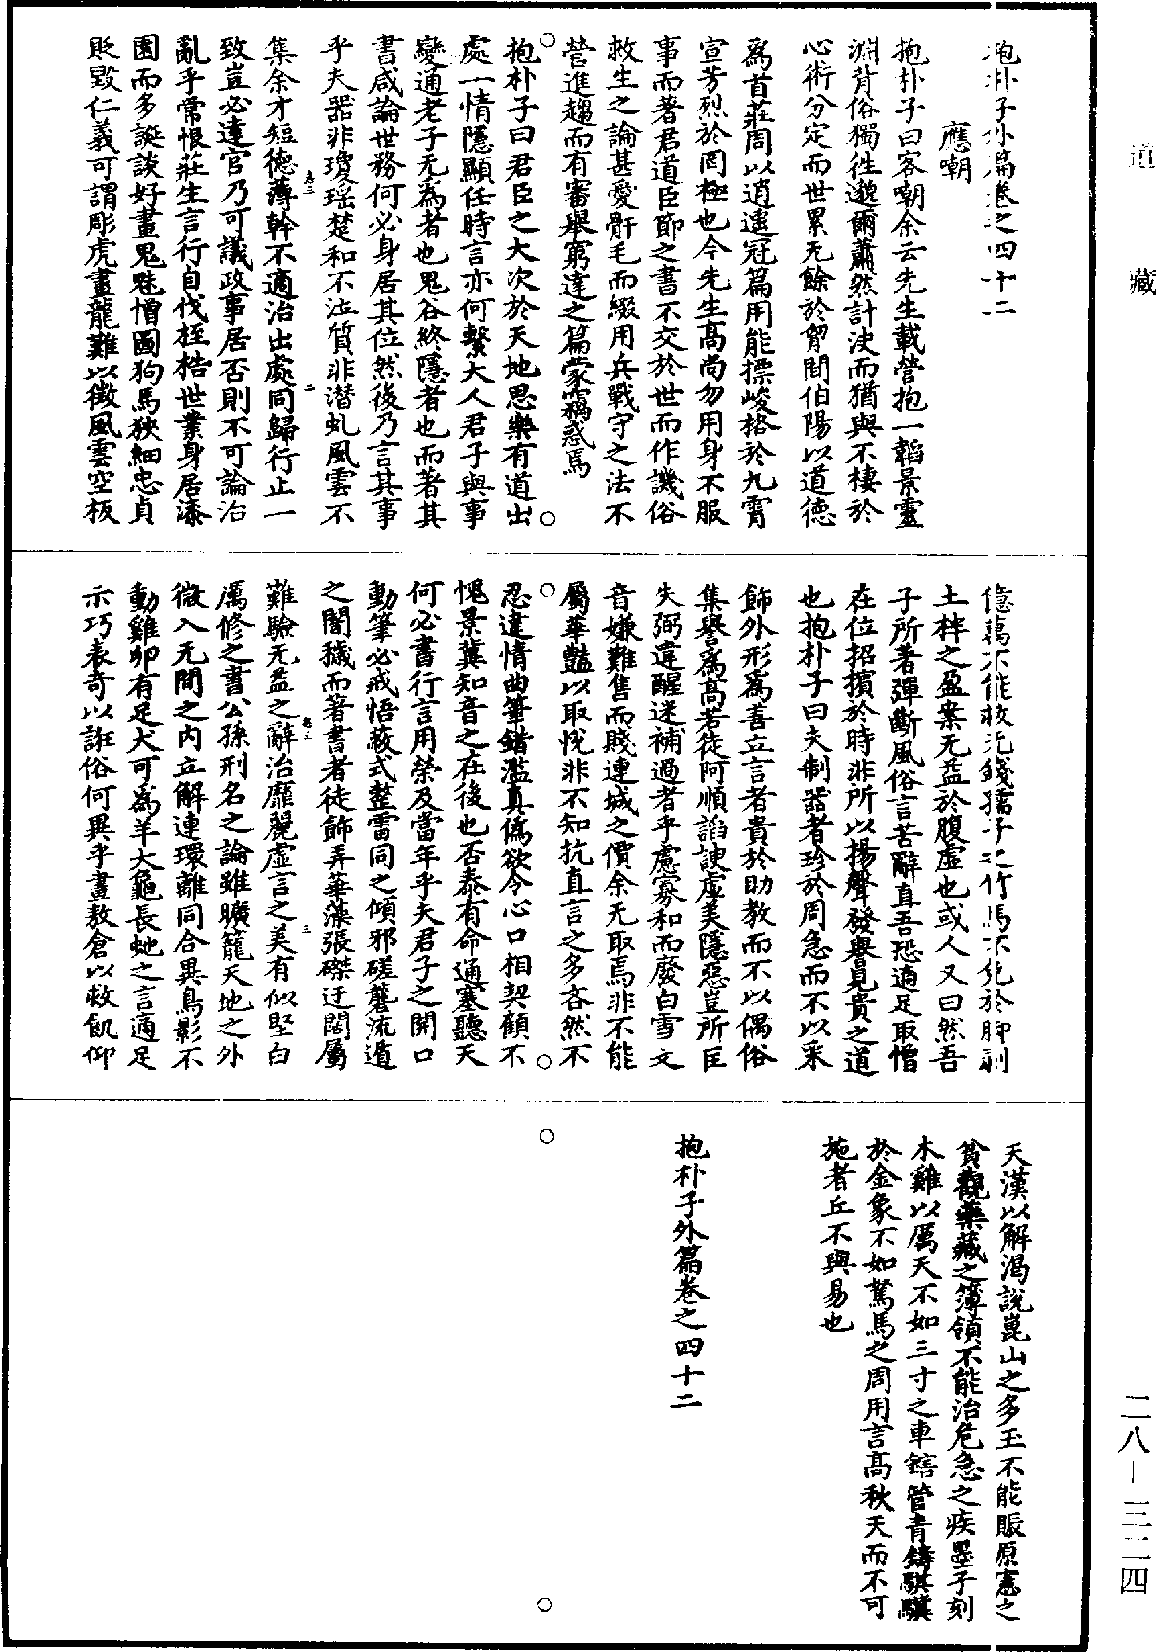 道藏
抱朴子外篇卷之四十二
應嘲
抱朴子曰客嘲余云先生載營抱一韜景靈
淵背俗獨往邈爾蕭然計決而猶與不棲於
心術分定而世累无餘於胷間伯陽以道德
爲首莊周以逍遥冠篇用能摽峻格於九霄
宣芳烈於罔極也今先生髙尚勿用身不服
事而著君道臣節之書不交於世而作譏俗
救生之論甚愛骭毛而綴用兵戰守之法不
營進趨而有審舉窮達之篇蒙竊惑焉
抱朴子曰君臣之大次於天地思樂有道出
處一情隱顯任時言亦何繫大人君子與事
變通老子无爲者也鬼谷終隱者也而著其
書咸論世務何必身居其位然後乃言其事
乎夫器非瓊瑶楚和不泣質非潜虬風雲不
集余才短德薄幹不適治出處同歸行止一
致豈必達官乃可議政事居否則不可論治
亂乎常恨莊生言行自伐桎梏世業身居漆
園而多誕談好畫鬼魅憎圖狗馬狹細忠貞
貶毀仁義可謂彫虎畫龍難以徵風雲空板
億萬不能救无錢孺子之竹馬不免於脚剥
土柈之盈案无益於腹虚也或人又曰然吾
子所著彈斷風俗言苦辭直吾恐適足取憎
在位招擯於時非所以揚聲發譽見貴之道
也抱朴子曰夫制器者珍於周急而不以采
飾外形爲善立言者貴於助教而不以偶俗
集譽爲髙若徒阿順諂諛虚美隱惡豈所匡
失弼違醒迷補過者乎慮寡和而廢白雪之
音嫌難售而賤連城之價余无取焉非不能
屬華豔以取悅非不知抗直言之多吝然不
忍違情曲筆錯濫真僞欲令心口相契顧不
愧景冀知音之在後也否泰有命通塞聽天
何必書行言用榮及當年乎夫君子之開口
動筆必戒悟蔽式整雷同之傾邪磋礱流遁
之闇穢而著書者徒飾弄華藻張磔迂闊屬
難驗无益之辭治靡麗虚言之美有似堅白
厲修之書公孫刑名之論雖曠籠天地之外
微入无間之内立解連環離同合異鳥影不
動雞卵有足犬可爲羊大龜長虵之言適足
示巧表奇以誑俗何異乎畫敖倉以救飢仰
天漢以解渴說崑山之多玉不能賑原憲之
貧觀藥藏之簿領不能治危急之疾墨子刻
木雞以厲天不如三寸之車鎋管青鑄騏驥
於金象不如駑馬之周用言髙秋天而不可
施者丘不與易也
抱朴子外篇卷之四十二
二八—三二四